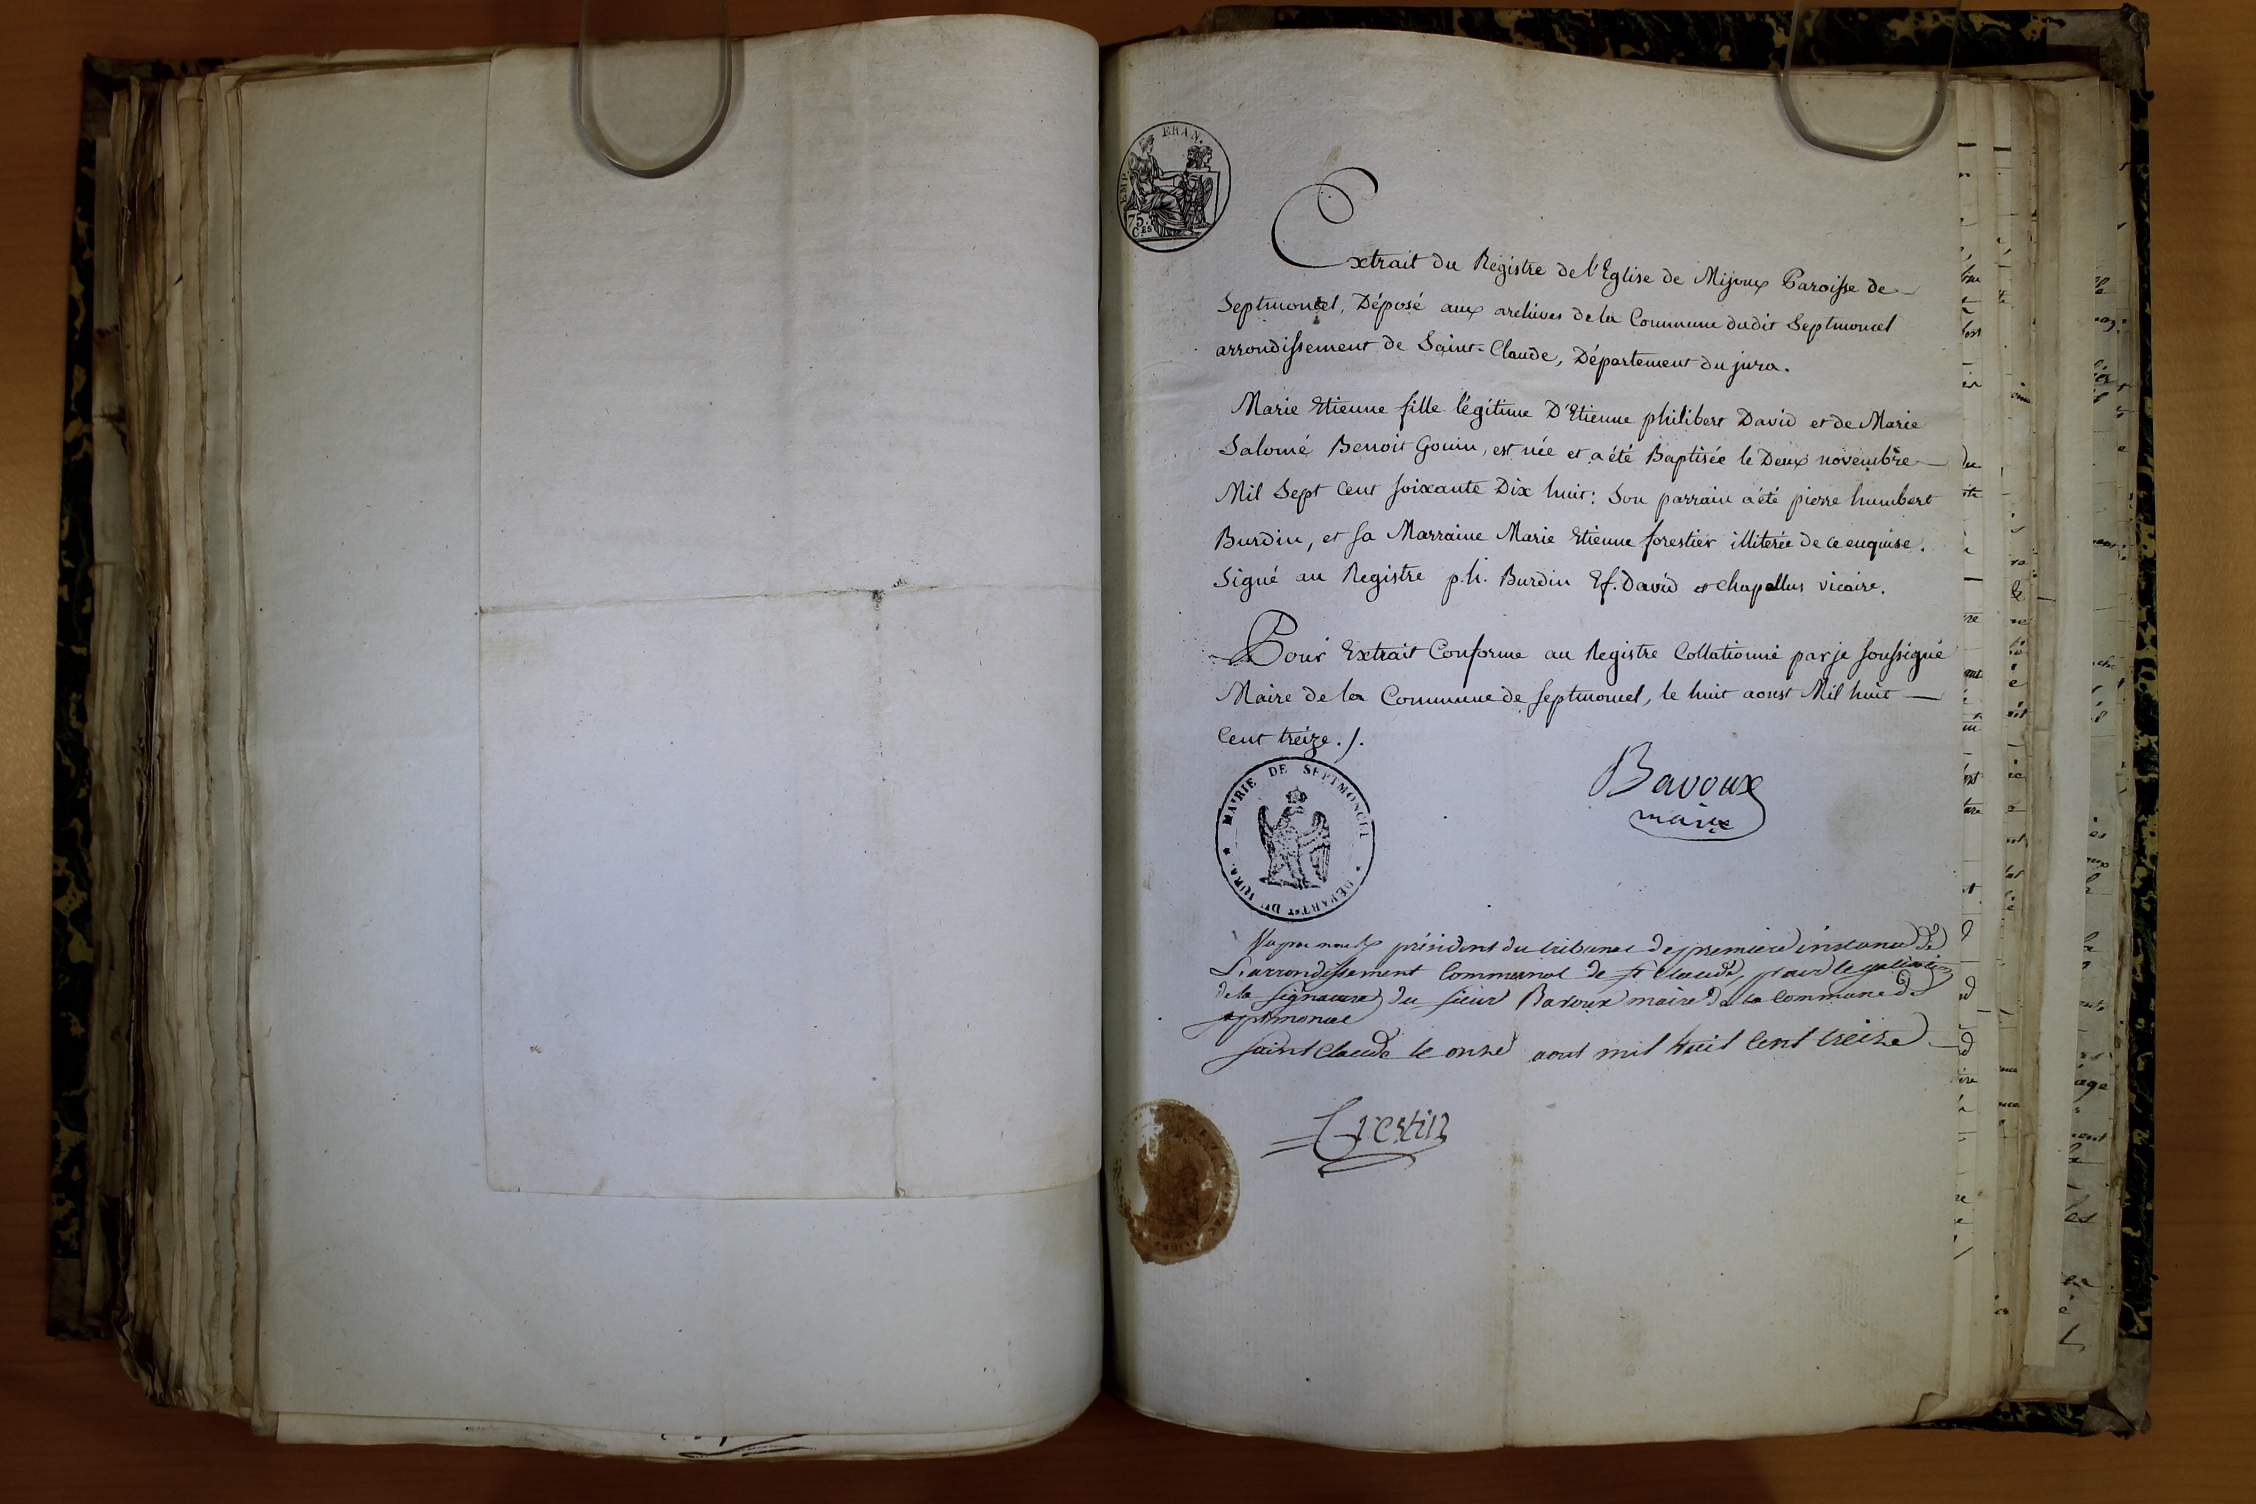 EMP. FRAN.
75.
CES
Extrait du Registre de l'Eglise de Mijoux Paroisse de
Septmoncel, Déposé aux archives de la Commune dudit Septmoncel
arrondissement de Saint-Claude, Département du jura.
Marie Etienne fille légitime D'Etienne philibert David et de Marie
Salomé Benoit Gouin, est née et a été Baptisée le Deux novembre
Mil Sept Cent soixante Dix huit: Son parrain a été pierre humbert
Burdin, et sa Marraine Marie Etienne forestier illiterée de ce enquise.
Signé au Registre p.h. Burdin Ef. David et Chapellus vicaire.
Pour Extrait Conforme au Registre Collationné par je soussigné
Maire de la Commune de Septmoncel, le huit aoust Mil huit
Cent treize./.
MAIRIE DE SEPTMONCEL * DÉPART.NT DU JURA. *
Bavoux
maire
Vu par nous président du tribunal de première instance de
L'arrondissement Communal de St Claude, pour legalisation
de la signature du sieur Bavoux maire de la Commune de
septmoncel
saint Claude le onze aout mil huit Cent treize
Crestin